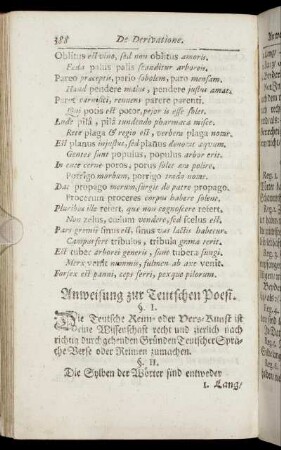 388 De Derivatione.
Oblitus est vino, sed non oblitus amoris.
Fœda palus palis scanditur arboreis.
Pareo præceptis, pario sobolem, paro mensam.
Haud pendere malus, pendere justus amat.
Paret carnifici, renuens parere parenti.
Qui potis est potor, prior is esse solet.
Lude pilâ, pilâ tundendo pharmaca misce.
Rete plaga & regio est, verbera plaga notat.
Est planus injustus, sed planus denotat æquum.
Gentes sunt populus, populus arbor erit.
In cute cerne poros, porus solet
Porrigo marbam, porrigo
Dat propago merum, surgit de patre propago.
Procerum proceres corpus habere solent.
Pluribus illa refert, quæ non cognoscere refert,
Non zelus, cœlum vendere, sed fœlus est.
Pars gremii sinus est, sinus vas lactis habetur.
Campus fert tribulos, tribula grana terit.
Est tuber arboreis generis, sunt tubera fungi.
Merx venit nummis, fulmen ab axe venit.
Forfex est panni, ceps ferri, pexque pilorum.
Anweisung zur Teutschen Poesi.
§. I.
Die Teutsche Reim- oder Vers-Kunst ist
eine Wissenschaft recht und zierlich nach
richtig durchgehenden Gründen Teutscher Spra-
che Verse oder Reimen zumachen.
§. II.
Die Sylben der Wörter sind entweder
1. Lang/